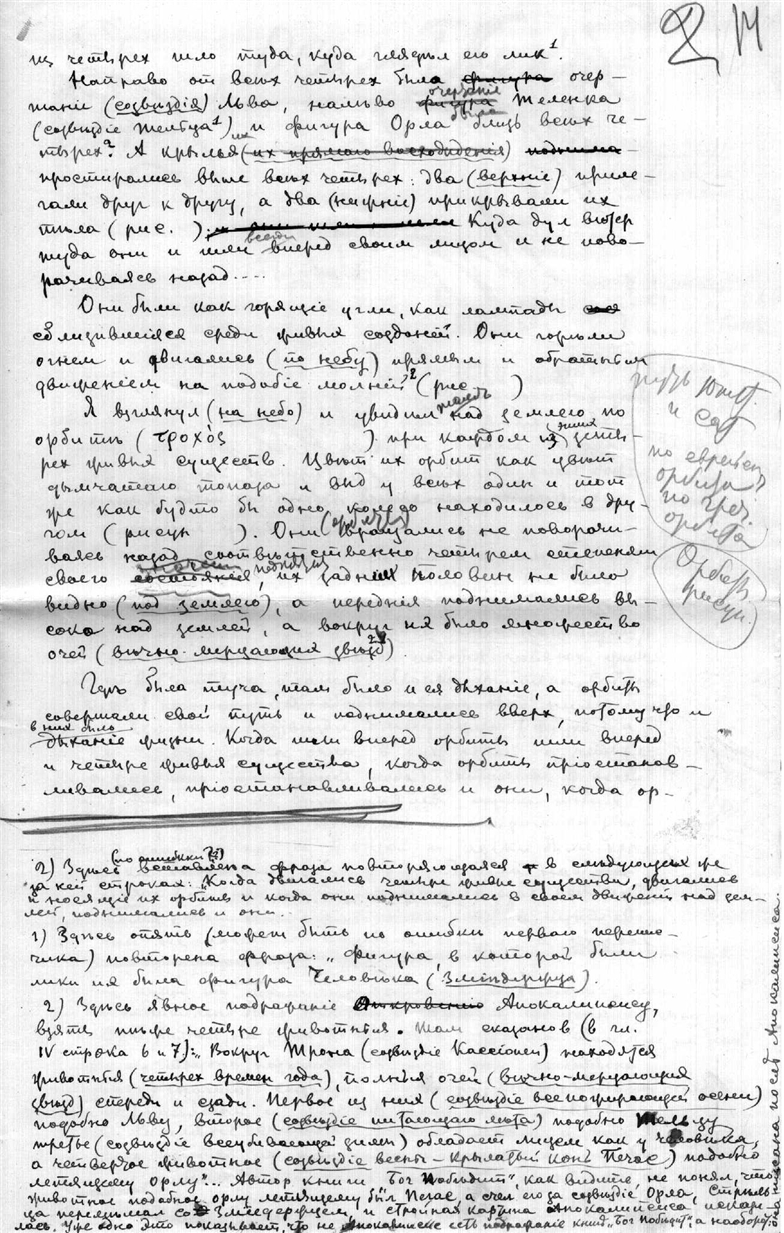 2 И
из четырех шло туда, куда глядѣл его лик¹.
Направо от всѣх четырех была фигура очер-
танiе (созвѣздiя) Льва, налѣво фигура очертанiе Теленка
(созвѣздiе Тельца¹) и фигура Орла была близь всѣх че-
тырех². А крылья их (их прямаго восхожденiя) поднима-
простирались выше всѣх четырех: два (верхнiе) приле-
гали друг к другу, а два (нижнiе) прикрывали их
тѣла (рис. ). Куда дул вѣтер
туда они и шли всегда вперед своим лицом и не пово-
рачиваясь назад....
Они были как горящiе угли, как лампады
сблизившiяся среди живых созданiй. Они горѣли
огнем и двигались (по небу) прямым и обратным
движенiем на подобiе молнiй² (рис )
Я взглянул (на небо) и увидѣл над землею по
орбитѣ (τροχὸς ) при каждом из этих четы-
рех живых существ. Цвѣт их орбит как цвѣт
дымчатаго топаза и вид у всѣх один и тот
же как будто бы одно колесо находилось в дру-
гом (рисун ). Они (орбиты) вращались не поворачи-
ваясь назад соотвѣтственно четырем степеням
своего состоянiя поднятiя, их задних половин не было
видно (под землею), а переднiя поднимались вы-
соко над землей, а вокруг их было множество
очей (вѣчно-мерцающих звѣзд)
путь Юпит.
и Сат
по еврейски
орбита
по греч.
орбита
Орбеты
рисун.
Гдѣ была туча, там было и ея дыханiе, а орбиты
совершали свой путь и поднимались вверх, потому что и
в них было дыханiе жизни. Когда шли вперед орбиты шли вперед
и четыре живыя существа, когда орбиты прiостанав-
ливались, прiостанавливались и они, когда ор-
2) Здѣсь (по ошибки ) вставлена фраза повторяющаяся в слѣдующих же
за ней строках: „Когда двигались четыре живые существа, двигались
и носящiе их орбиты и когда они поднимались в своем движенiи над зем-
лей, поднимались и они..
1) Здѣсь опять (может быть по ошибки перваго перепис-
чика) повторена фраза: „фигура, в которой были
лики их была фигура Человѣка (Змѣедержца).
2) Здѣсь явное подражанiе Откровенiю Апокалипсису,
взяты тѣже четыре животныя. Там сказанов (в гл.
IV строка 6 и 7): „Вокруг Трона (созвѣздiе Кассiопеи) находятся
животныя (четырех времен года), полныя очей (вѣчно-мерцающих
звѣзд) спереди и сзади. Первое из них (созвѣздiе всепожирающей осени)
подобно Льву, второе (созвѣздiе питающаго лѣта) подобно Тельцу
третье (созвѣздiе всеубивающей зимы) обладает лицем как у человѣка,
а четвертое животное (созвѣздiе весны - Крылатый Конь Пегас) подобно
летящему орлу"... Автор книги „Бог Побѣдит", как видите, не понял, что
животное подобное орлу летящему был Пегас, а счел его за созвѣздiе Орла, Стрѣль-
ца перемѣшал со Змѣедержцем, и стройная картина Апокалипсиса искази-
лась. Уже одно это показывает, что не Апокалипсис есть подражанiе книгѣ „Бог Побѣдит", а наоборот:
написана послѣ Апокалипсиса.